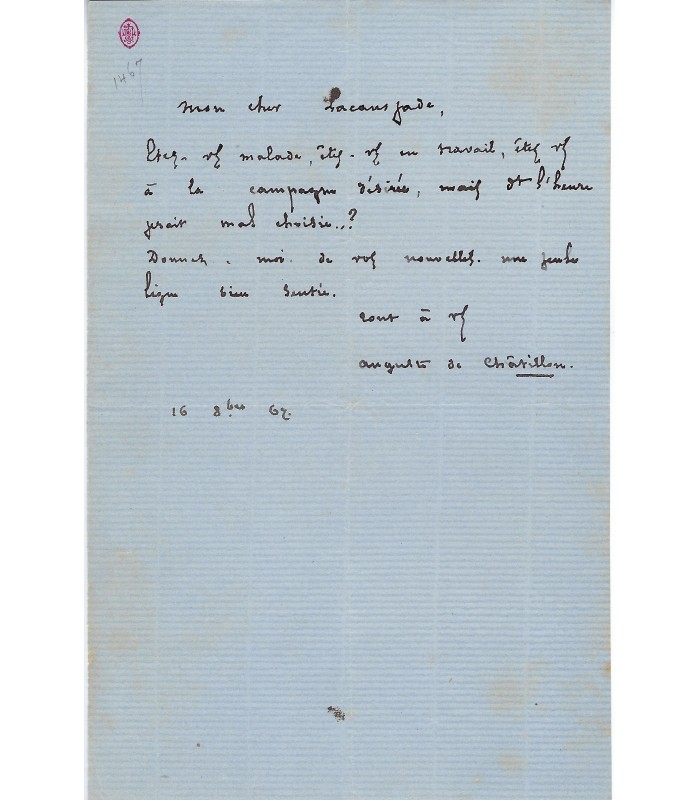 1467
mon cher Lacaussade,
Etes-vs malade, êtes-vs en travail, êtes vs
à la campagne désirée, mais dt l'heure
serait mal choisie..?
Donnez-moi de vos nouvelles. une seule
ligne bien sentie.
tout à vs
auguste de Châtillon.
16 8bre 67.